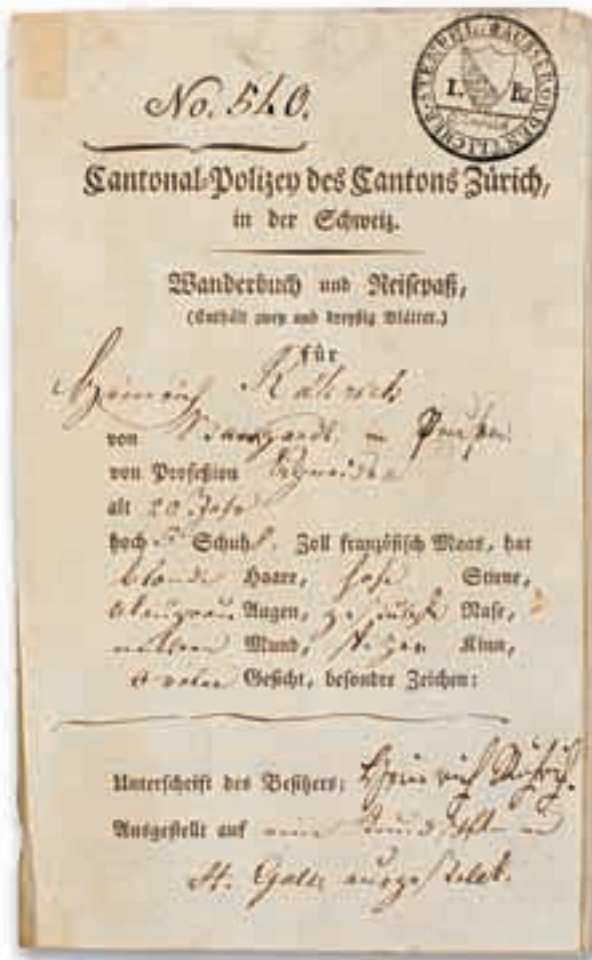 No. 540.
AUSSERORDENTLICHER STEMPEL
I. Bz
Cantonal-Polizey des Cantons Zürich,
in der Schweiz.
Wanderbuch und Reisepaß,
(Enthält zwey und dreyßig Blätter.)
für
Heinrich
von in Preußen
von Profeßion Schneider
alt 20 Jahr
hoch 5 Schuh Zoll französisch Maas, hat
blonde Haare, hohe Stirne,
blaugraue Augen, Nase,
mittlern Mund, Kinn,
ovales Gesicht, besondre Zeichen:
Unterschrift des Besitzers: Heinrich
Ausgestellt auf
St. Gallen ausgestellt.